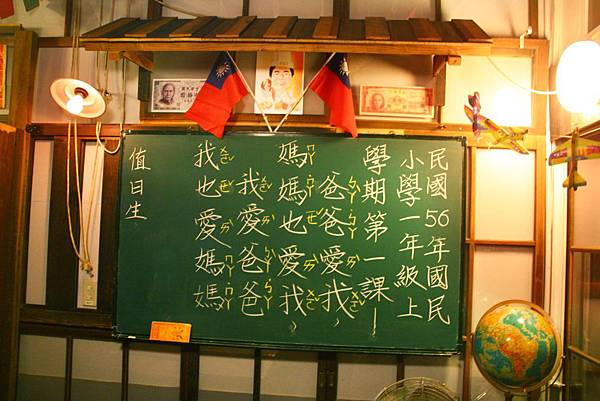 民國56年國民
小學一年級上
學期第一課—
爸爸愛我，
媽媽也愛我，
我愛爸爸
我也愛媽媽
值日生